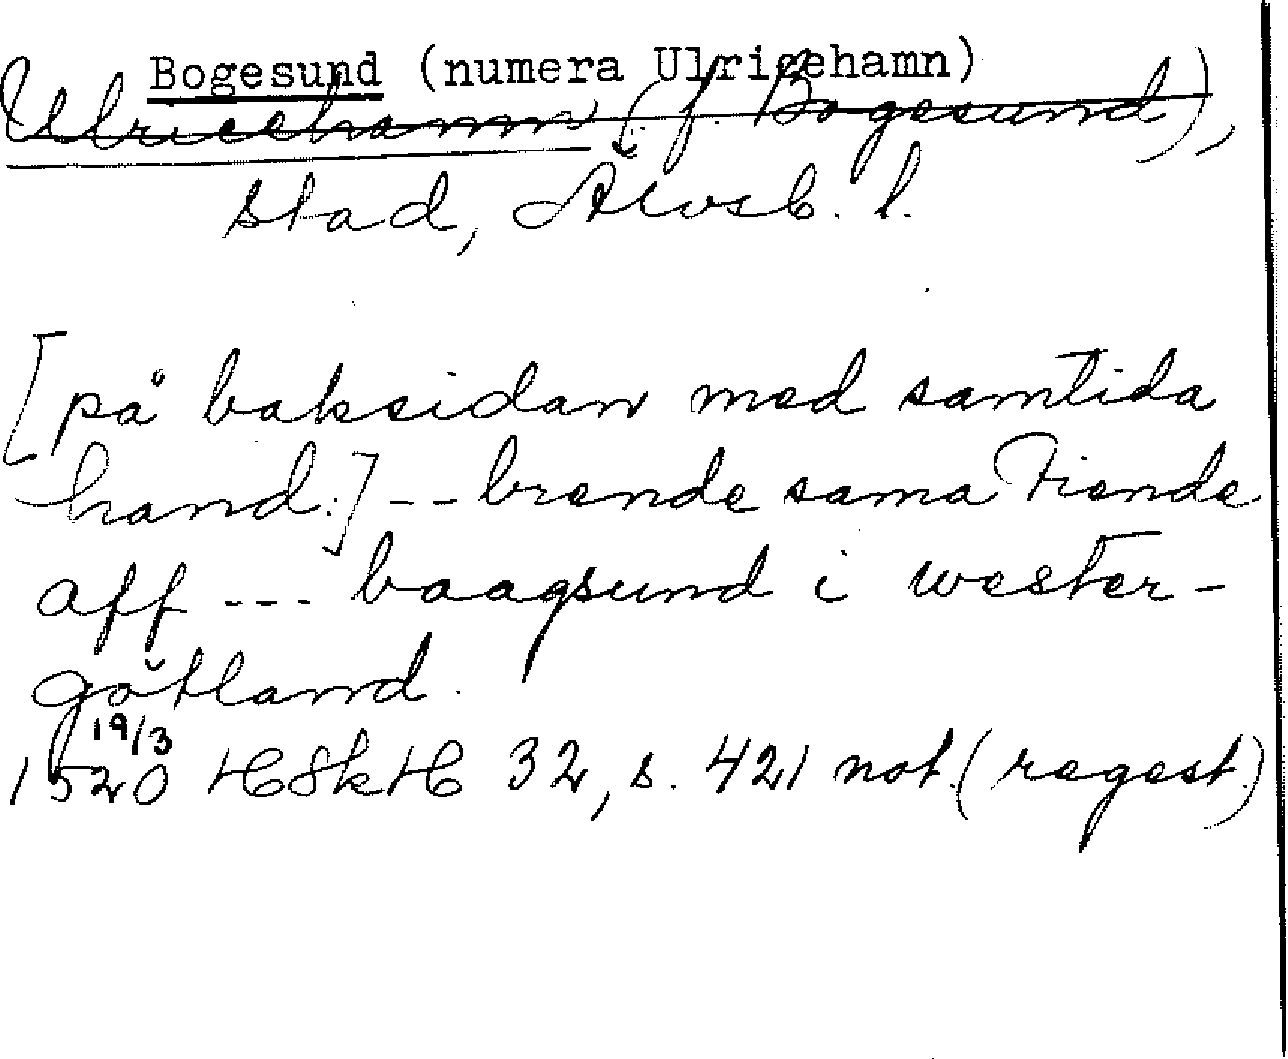 Bogesund (numera Ulricehamn)
Ulricehamn (f. Bogesund),
stad, Älvsb. l.
[på baksidan med samtida
hand:] -- brende sama Fiende
aff --- baagsund i wester-
götland.
19/3
1520 HSkH 32, s. 421 not. (regest.)